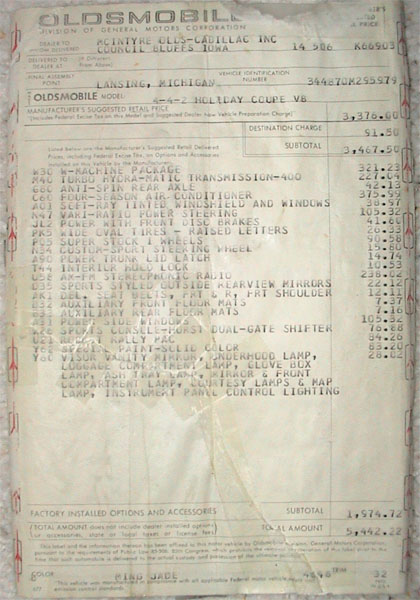 OLDSMOBILE
DIVISION OF GENERAL MOTORS CORPORATION
DEALER TO WHOM DELIVERED
MCINTYRE OLDS-CADILLAC INC
COUNCIL BLUFFS IOWA
14 506
K66903
DELIVERED TO DEALER AT
(If Different From Above)
FINAL ASSEMBLY POINT
LANSING, MICHIGAN
VEHICLE IDENTIFICATION NUMBER
344870M295979
OLDSMOBILE MODEL
4-4-2 HOLIDAY COUPE V8
MANUFACTURER'S SUGGESTED RETAIL PRICE
(Includes Federal Excise Tax on this Model and Suggested Dealer New Vehicle Preparation Charge)
3,376.00
DESTINATION CHARGE
91.50
SUBTOTAL
3,467.50
Listed below are the Manufacturer's Suggested Retail Delivered
Prices, including Federal Excise Tax, on Options and Accessories
Installed on this Vehicle by the Manufacturer:
W30 W-MACHINE PACKAGE 321.23
M40 TURBO HYDRA-MATIC TRANSMISSION-400 227.04
G80 ANTI-SPIN REAR AXLE 42.13
C60 FOUR-SEASON AIR-CONDITIONER 375.99
A01 SOFT-RAY TINTED WINDSHIELD AND WINDOWS 38.97
N47 VARI-RATIO POWER STEERING 105.32
JL2 POWER WITH FRONT DISC BRAKES 41.60
PK5 WIDE OVAL TIRES - RAISED LETTERS 26.33
P05 SUPER STOCK I WHEELS 90.58
N34 CUSTOM-SPORT STEERING WHEEL 15.80
A90 POWER TRUNK LID LATCH 14.74
T44 INTERIOR HOOD LOCK 10.53
U58 AM-FM STEREOPHONIC RADIO
D35 SPORTS STYLED OUTSIDE REARVIEW MIRRORS 22.12
AK1 DEL. SEAT BELTS, FRT & R, FRT SHOULDER 12.
AUXILIARY FRONT FLOOR MATS 7.37
AUXILIARY REAR FLOOR MATS 7.16
POWER SIDE WINDOWS 105.32
SPORTS CONSOLE-HURST DUAL-GATE SHIFTER 76.88
RALLY PAC 84.26
PAINT-SOLID COLOR 83.20
Y60 VISOR VANITY MIRROR, UNDERHOOD LAMP, 28.02
LUGGAGE COMPARTMENT LAMP, GLOVE BOX
LAMP, ASH TRAY LAMP, MIRROR & FRONT
COMPARTMENT LAMP, COURTESY LAMPS & MAP
LAMP, INSTRUMENT PANEL CONTROL LIGHTING
FACTORY INSTALLED OPTIONS AND ACCESSORIES
SUBTOTAL
1,974.72
(TOTAL AMOUNT does not include dealer installed options
or accessories, state or local taxes or license fees)
TOTAL AMOUNT
5,442.22
COLOR
MINO JADE
TRIM
32